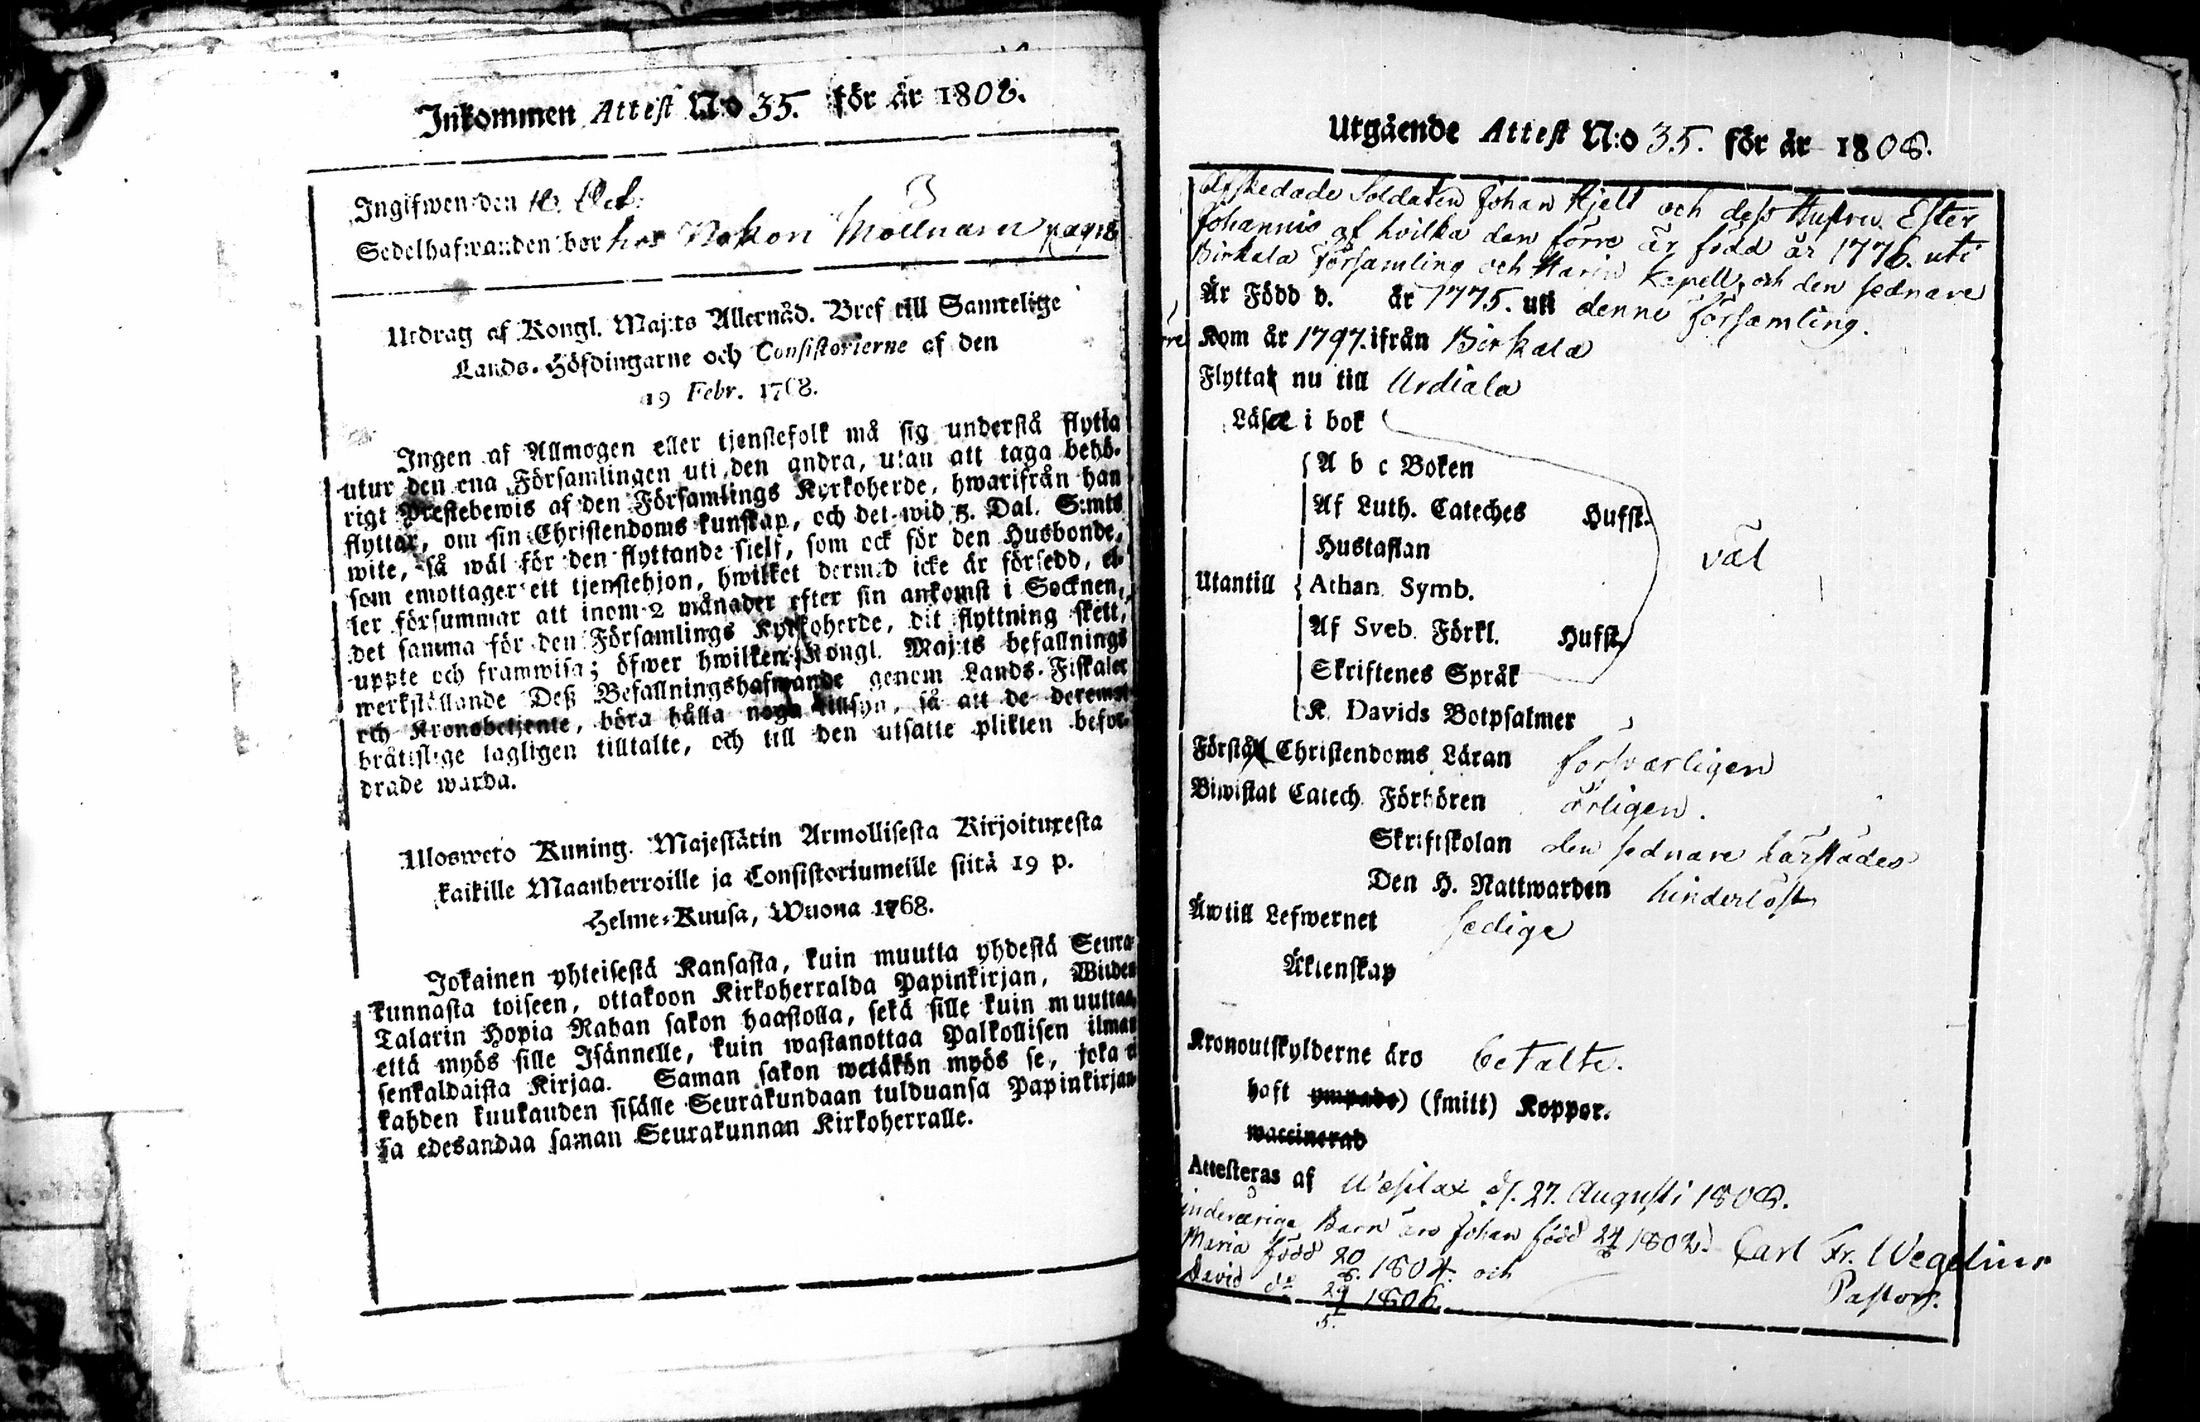 Inkommen Attest N:o 35. för år 1808.
Ingifwen den 10. Oct.
Sedelhafwanden bor hos Nokon Möllnarn pag 18
Utdrag af Kongl. Maj:ts Allernåd. Bref till Samtelige
Lands-Höfdingarne och Consistorierne af den
19 Febr. 1768.
Ingen af Allmogen eller tjenstefolk må sig understå flytta
utur den ena Församlingen uti den andra, utan att taga behö-
rigt Prestebewis af den Församlings Kyrkoherde, hwarifrån han
flyttar, om sin Christendoms kunskap, och det wid 5. Dal. S:mts
wite, så wäl för den flyttande sielf, som ock för den Husbonde,
som emottager ett tjenstehjon, hwilket dermed icke är försedd, el-
ler försummar att inom 2 månader efter sin ankomst i Socknen,
det samma för den Församlings Kyrkoherde, dit flyttning skett,
uppte och framwisa; öfwer hwilken Kongl. Maj:ts befallnings
werkställande Deß Befallningshafwande genom Lands-Fiskaler
och Kronobetjente, böra hålla noga tillsyn, så att de deremot
bråtislige lagligen tilltalte, och till den utsatte plikten befor-
drade warda.
Ulosweto Kuning. Majestätin Armollisesta Kirjoituxesta
kaikille Maanherroille ja Consistoriumeille siitä 19 p.
Helme-Kuusa, Wuona 1768.
Jokainen yhteisestä Kansasta, kuin muutta yhdestä Seura-
kunnasta toiseen, ottakoon Kirkoherralda Papinkirjan, Wiiden
Talarin Hopia Rahan sakon haastolla, sekä sille kuin muuttaa,
että myös sille Isännelle, kuin wastanottaa Palkollisen ilman
senkaldaista Kirjaa. Saman sakon wetäkön myös se, joka ei
kahden kuukauden sisälle Seurakundaan tulduansa Papinkirjan-
sa edesandaa saman Seurakunnan Kirkoherralle.
Utgående Attest N:o 35. för år 1808.
Afskedade Soldaten Johan Hjelt och dess Hustru Ester
Johannis af hvilka den förre är född år 1776. uti
Birkala Församling och Harju Kapell, och den sednare
Är Född d. år 1775. uti denne Församling.
Kom år 1797. ifrån Birkala
Flytta nu till Urdiala
Läsa i bok
A b c Boken
Af Luth. Cateches Hufst.
Hustaflan väl
Utantill Athan. Symb.
Af Sveb. Förkl. Hufst.
Skriftenes Språk
K. Davids Botpsalmer
Förstå Christendoms Läran försvarligen
Biwistat Catech. Förhören årligen.
Skriftskolan den sednare härstädes
Den H. Nattwarden hinderlöst
Äwtill Lefwernet sedige
Äktenskap
Kronoutskylderne äro betalte.
haft ympade) (smitt) Koppor.
waccinerad
Attesteras af Wesilax d. 27. Augusti 1808.
inderårige Barn äro Johan född 24/8 1802. Carl Fr. Wegelius
Maria född 20/8. 1804. och Pastor.
David do 29/5. 1806.